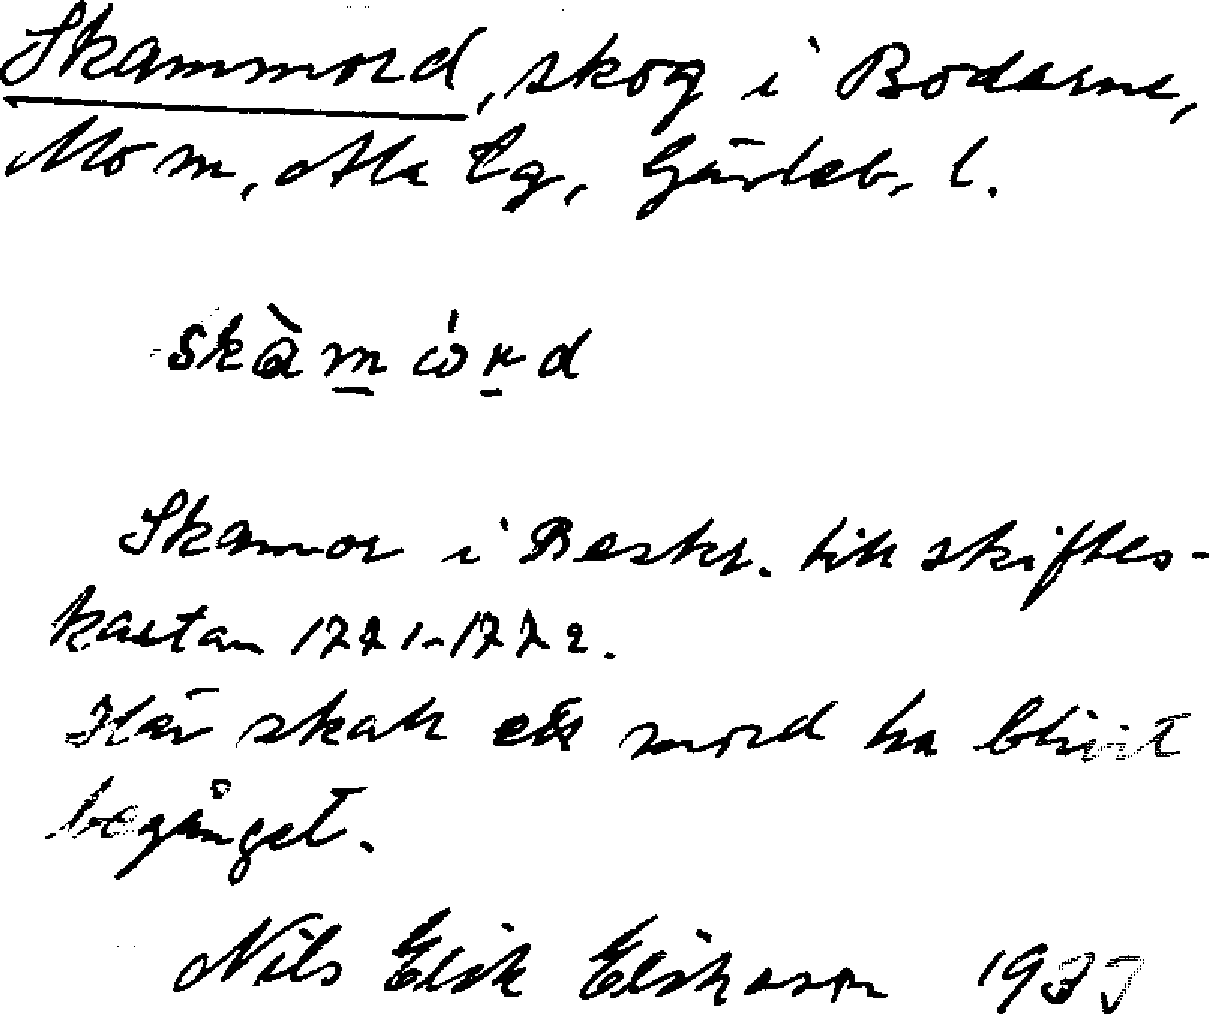 Skammord, skog i Bodarne,
Mo sn, Ala tg, Gävleb. l.
skàmórd
Skamor i Beskr. till skiftes-
kartan 1771-1772.
Här skall ett mord ha blivit
begånget.
Nils Erik Eriksson